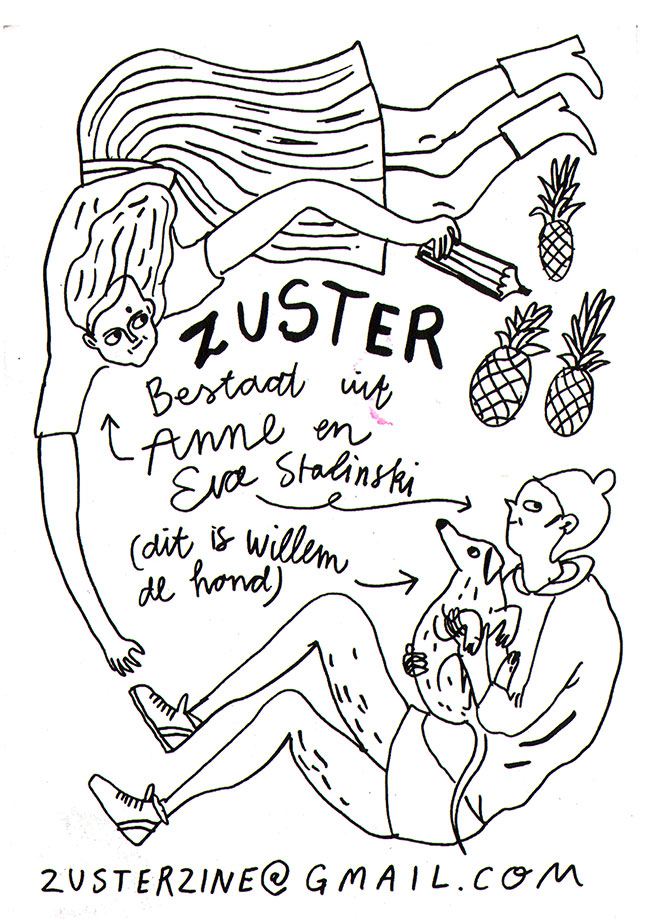 ZUSTER
Bestaat uit
Anne en
Eva Stalinski
(dit is Willem
de hond)
ZUSTERZINE@GMAIL.COM